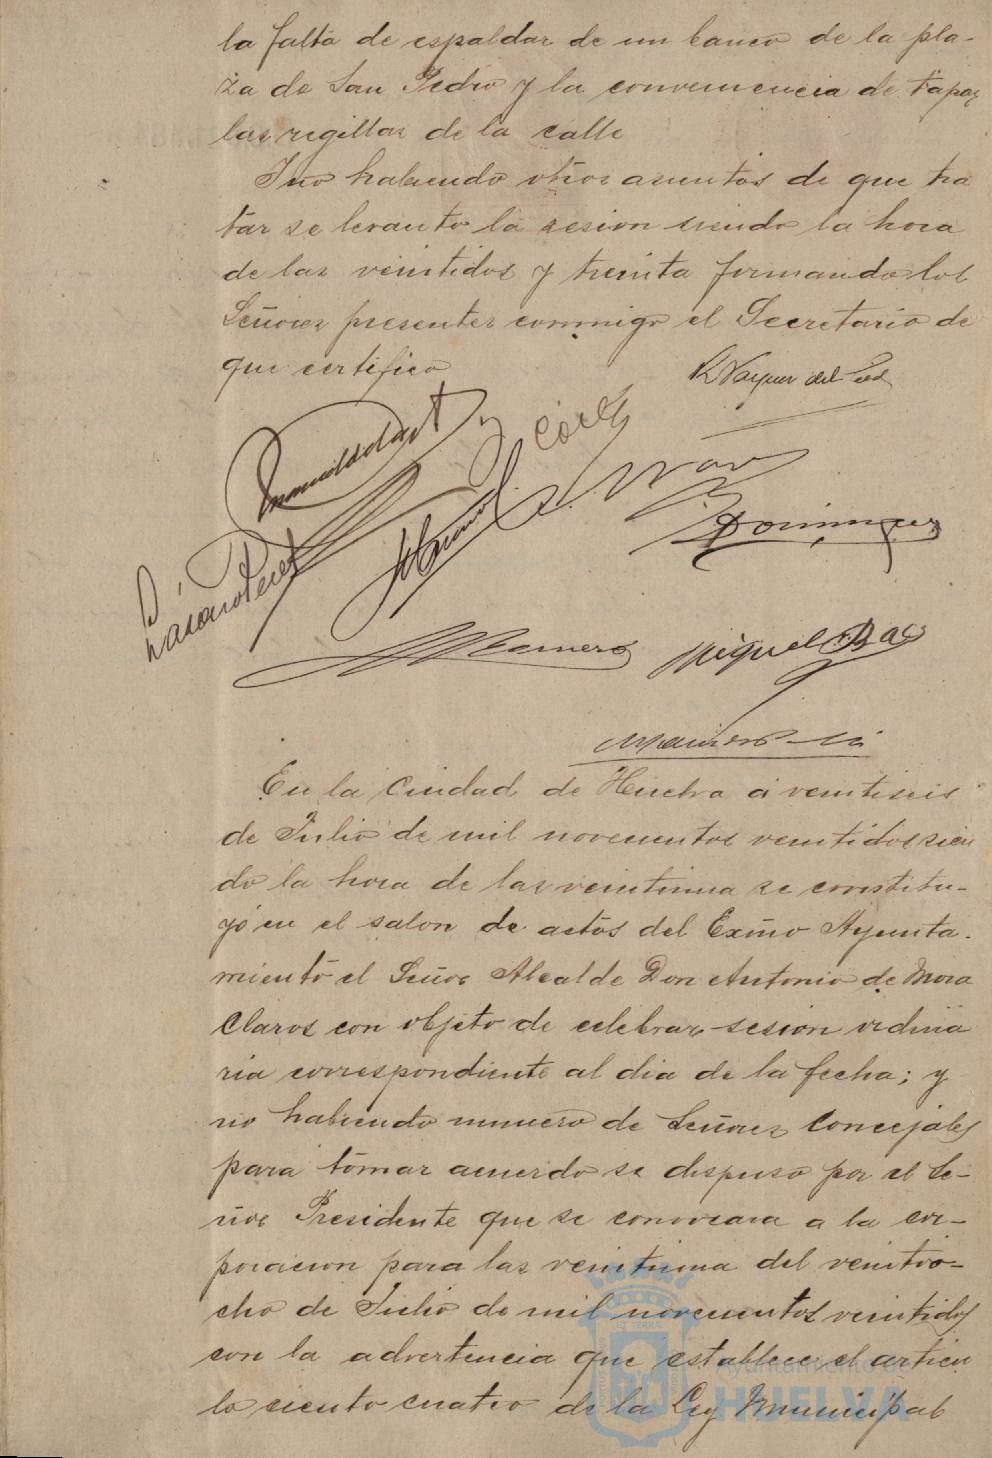 la falta de espaldar de un banco de la pla-
za de San Pedro y la conveniencia de tapar
las regillas de la calle
Y no habiendo otros asuntos de que tra
tar se levanto la sesion siendo la hora
de las veintidos y treinta firmando los
Señores presentes conmigo el Secretario de
que certifico
Coto
Dominguez
Lazaro Perez
Romero
Miguel Baez
En la Ciudad de Huelva a veintiseis
de Julio de mil novecientos veintidos sien
do la hora de las veintiuna se constitu-
yó en el salon de actos del Exmo Ayunta-
miento el Señor Alcalde Don Antonio de Mora
Claros con objeto de celebrar sesion ordina
ria correspondiente al dia de la fecha; y
no habiendo numero de Señores Concejales
para tomar acuerdo se dispuso por el Se-
ñor Presidente que se convocara a la cor-
poracion para las veintiuna del veintio-
cho de Julio de mil novecientos veintidos
con la advertencia que establece el articu
lo ciento cuatro de la Ley Municipal
Ayuntamiento de
HUELVA